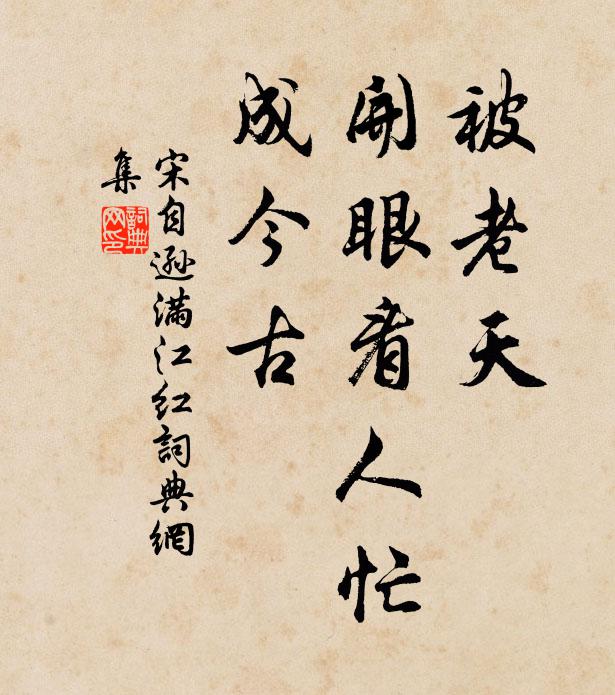 被老天
開眼看人忙
成今古
宋自遜滿江紅詞典網
集
詞典
网印